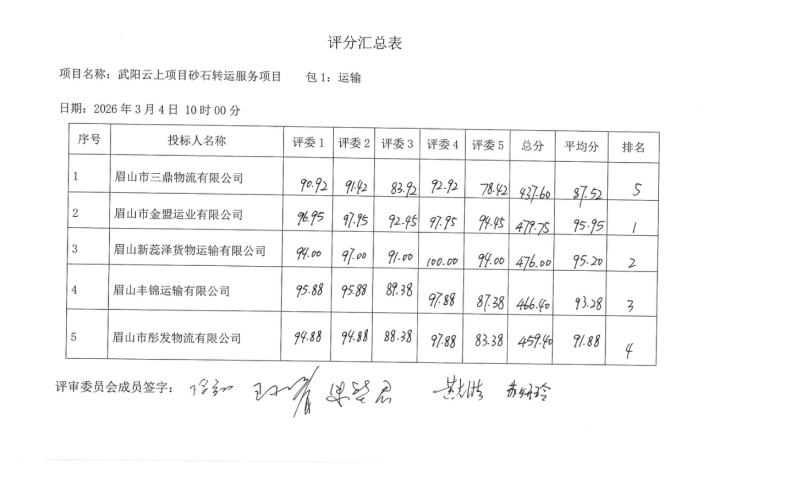 评分汇总表
项目名称：武阳云上项目砂石转运服务项目 包 1：运输
日期：2026 年 3 月 4 日 10 时 00 分
序号 投标人名称 评委 1 评委 2 评委 3 评委 4 评委 5 总分 平均分 排名
1 眉山市三鼎物流有限公司 90.92 91.42 83.92 92.92 78.42 437.60 87.52 5
2 眉山市金盟运业有限公司 96.95 97.95 92.45 97.95 94.45 479.75 95.95 1
3 眉山新蕊泽货物运输有限公司 94.00 97.00 91.00 100.00 94.00 476.00 95.20 2
4 眉山丰锦运输有限公司 95.88 95.88 89.38 97.88 87.38 466.40 93.28 3
5 眉山市彤发物流有限公司 94.88 94.88 88.38 97.88 83.38 459.40 91.88 4
评审委员会成员签字：